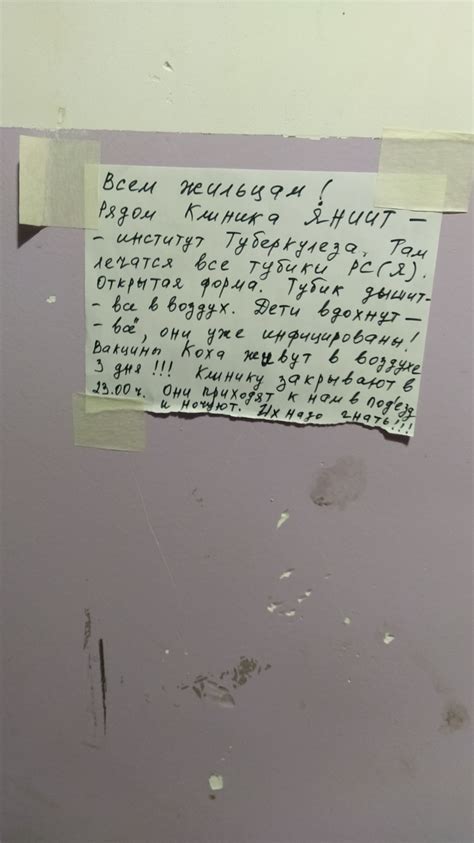 Всем жильцам!
Рядом Клиника ЯНИИТ –
– институт Туберкулеза. Там
лечатся все тубики РС(Я).
Открытая форма. Тубик дышит-
- все в воздух. Дети вдохнут –
- всё, они уже инфицированы!
Вакцины Коха живут в воздухе
3 дня!!! Клинику закрывают в
23.00 ч. Они приходят к нам в под'езд
и ночуют. Их надо гнать!!!